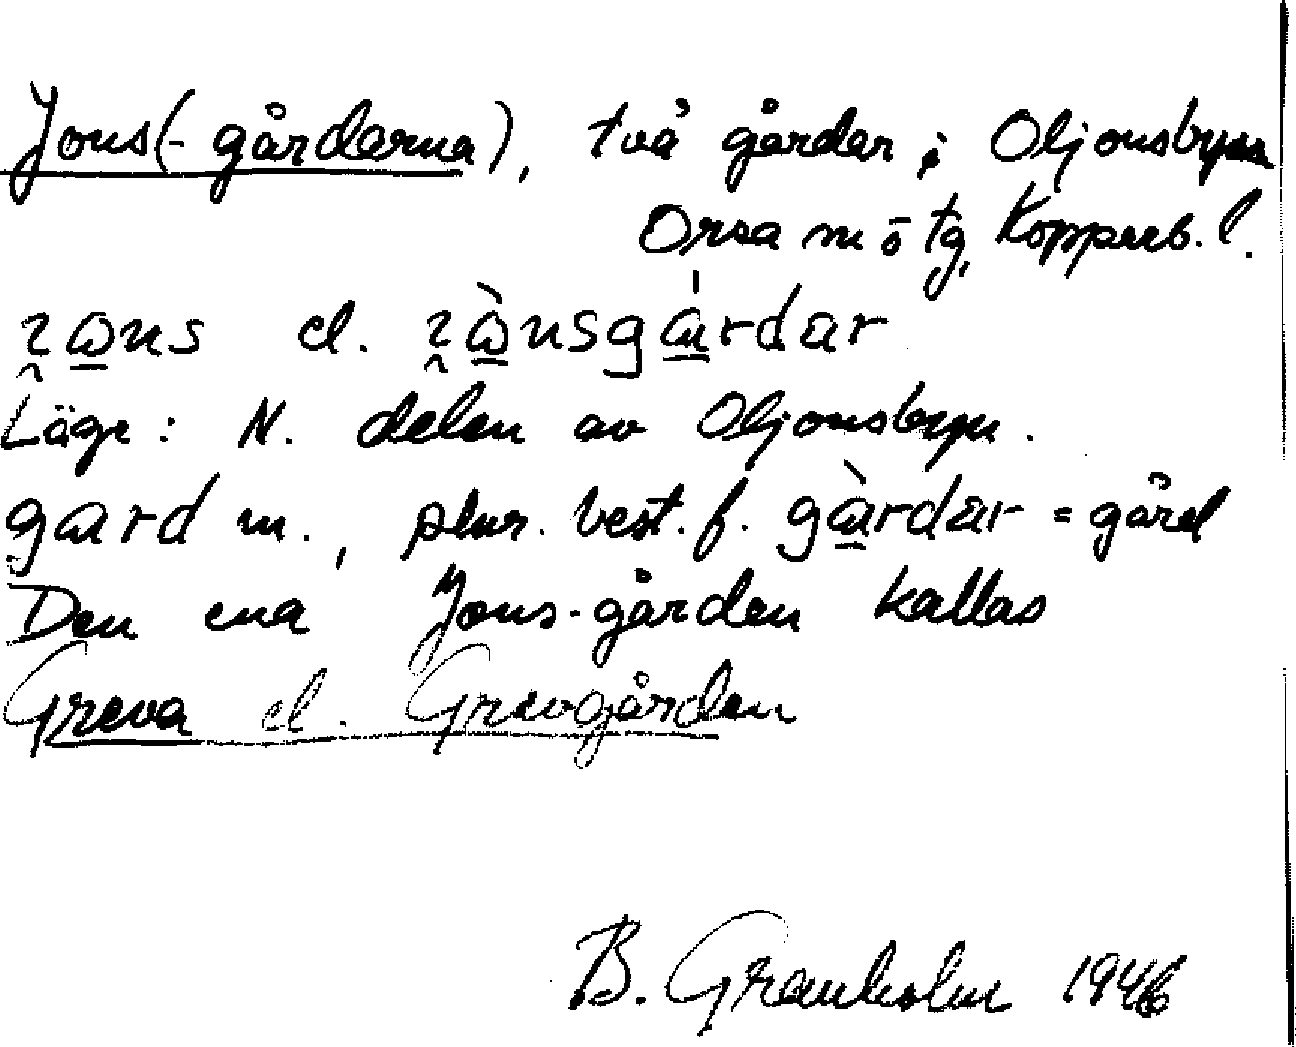 Jons(-gårdarna), två gårdar i Oljonsbyn
Orsa m ö tg, Kopparb. l.
el.
Läge: N. delen av Oljonsbyn.
gard m., plur. best. f. gàrdar = gård
Den ena Jons-gården kallas
Greva el. Grevgården
B. Granholm 1946